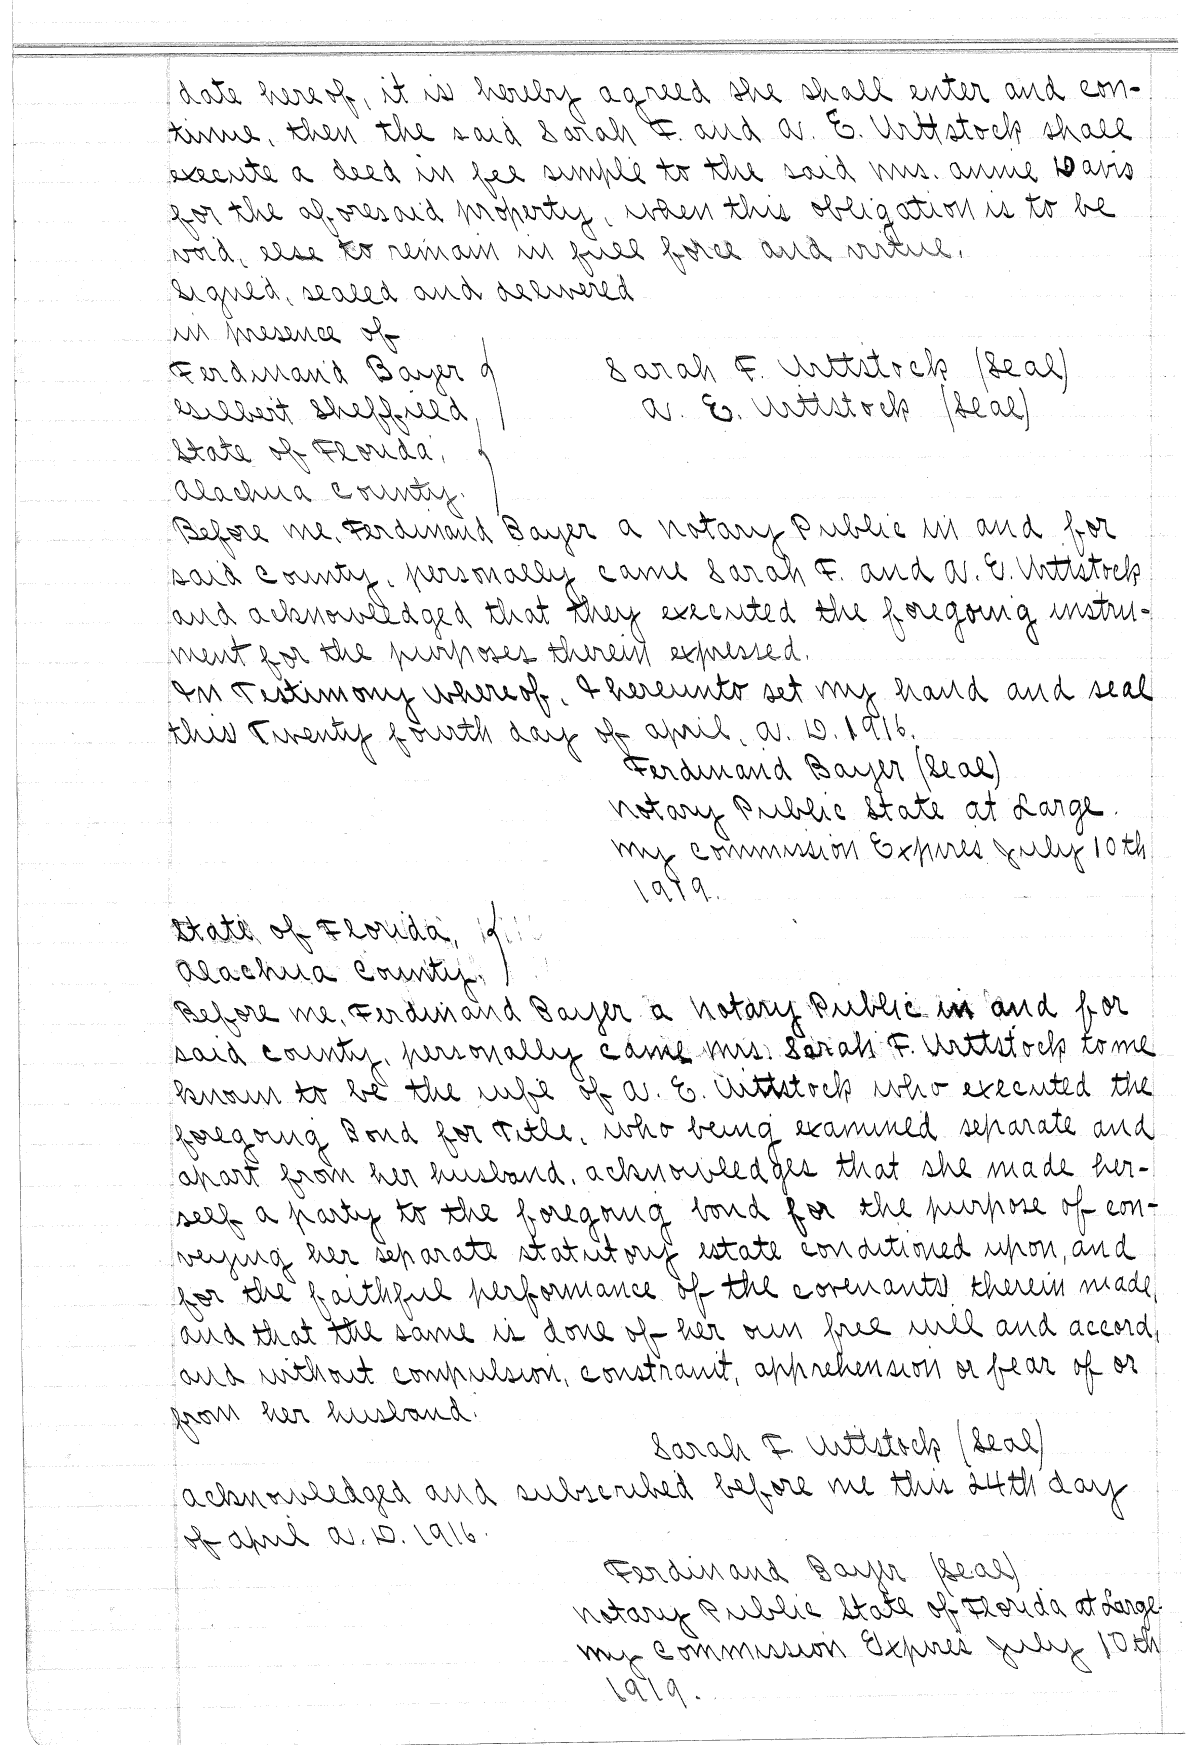 date hereof, it is hereby agreed she shall enter and con-
tinue, then the said Sarah F. and A. E. Wittstock shall
execute a deed in fee simple to the said Mrs. Annie Davis
for the aforesaid property, when this obligation is to be
void, else to remain in full force and virtue.
Signed, sealed and delivered
in presence of
Ferdinand Bayer Sarah F. Wittstock (Seal)
Gilbert Sheffield, A. E. Wittstock (Seal)
State of Florida,
Alachua County.
Before me, Ferdinand Bayer a Notary Public in and for
said County, personally came Sarah F. and A. E. Wittstock
and acknowledged that they executed the foregoing instru-
ment for the purposes therein expressed.
In Testimony whereof, I hereunto set my hand and seal
this Twenty fourth day of April, A. D. 1916.
Ferdinand Bayer (Seal)
Notary Public State at Large.
My Commission Expires July 10th
1919.
State of Florida,
Alachua County,
Before me, Ferdinand Bayer a Notary Public in and for
said County, personally came Mrs. Sarah F. Wittstock to me
known to be the wife of A. E. Wittstock who executed the
foregoing Bond for Title, who being examined separate and
apart from her husband, acknowledges that she made her-
self a party to the foregoing bond for the purpose of con-
veying her separate statutory estate conditioned upon, and
for the faithful performance of the covenants therein made,
and that the same is done of her own free will and accord,
and without compulsion, constraint, apprehension or fear of or
from her husband.
Sarah F Wittstock (Seal)
Acknowledged and subscribed before me this 24th day
of April A. D. 1916.
Ferdinand Bayer (Seal)
Notary Public State of Florida at Large.
My Commission Expires July 10th
1919.